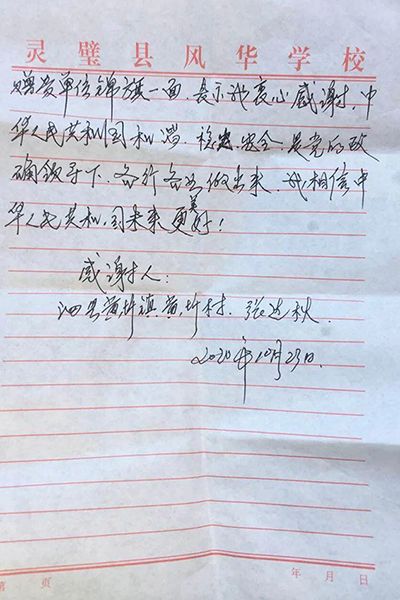 灵璧县风华学校
赠贵单位锦旗一面,表示我衷心感谢,中
华人民共和国和谐、稳定、安全、是党的政
确领导下、各行各业做出来,我相信中
华人民共和国未来更美好!
感谢人:
泗县黄圩镇黄圩村、张达秋.
2020年10月29日.
第 页 年 月 日